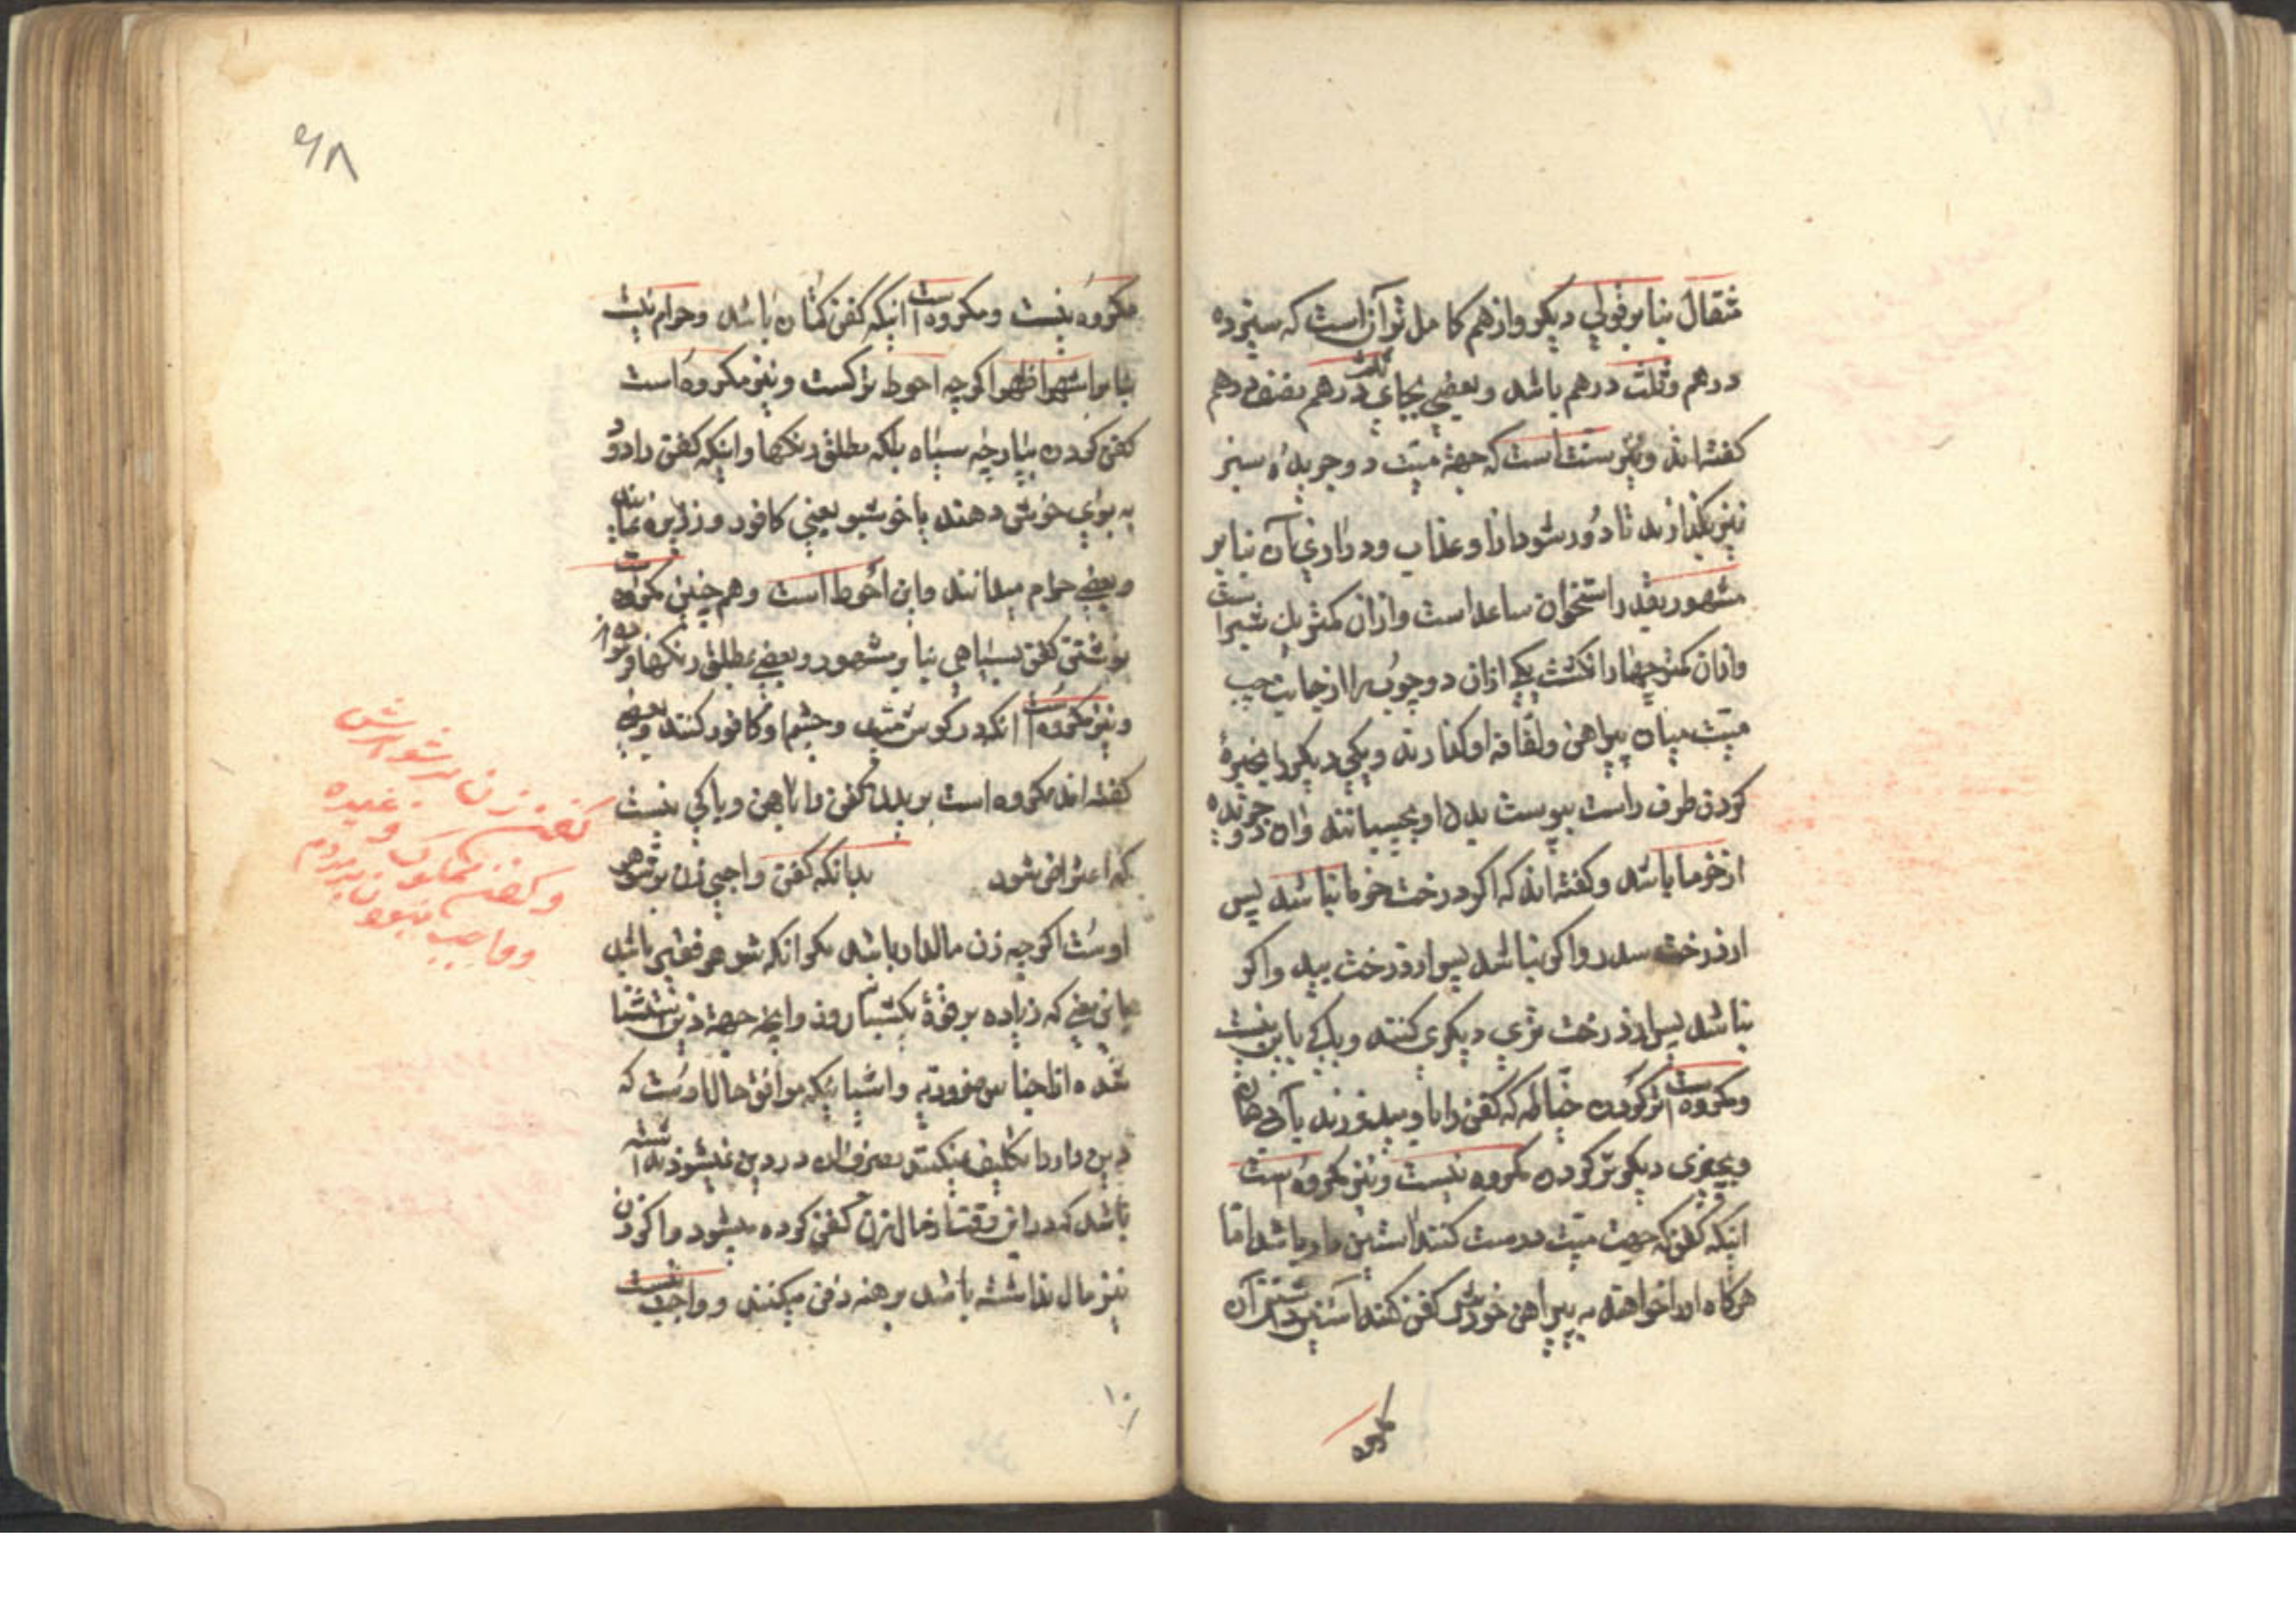 مثقال بنا بر قولی دیگر و از هم کامل تر آن است که سیزده
درهم و ثلث درهم باشد و بعضی بجای ثلث درهم نصف درهم
گفته اند و نیز سنت است که جهة میّت دو جریدهٔ سبز
نیز بگذارند تا دور شود از او عذاب و درازی آن بنا بر
مشهور بقدر استخوان ساعد است و از ان کمتر یک شبر است
و از ان کمتر چهار انگشت یکی از ان دو چوب را از جانب چپ
میّت میان پیراهن و لفافه او گذارند و یکی دیگر را
کردن طرف راست بپوست بدن او بچسپانند و ان دو جریده
از خرما باشد و گفته اند که اگر درخت خرما نباشد پس
از درخت سدر و اگر نباشد پس از درخت بید و اگر
نباشد پس از درخت تری دیگری کنند و باکی باین نیست
و مکروه است تر کردن خیاطه که کفن را با او میدوزند بآب دهان
و بچیزی دیگر تر کردن مکروه نیست و نیز مکروه است
اینکه کفنی که جهت میّت درست کنند استین دار باشد امّا
هرگاه او را خواهند به پیراهن خودش کفن کنند آستین داشتن آن
مکروه
۶۸
مکروه نیست و مکروه است اینکه کفن کتان باشد و حرام نیست
بنا بر اشهر اظهر اگرچه احوط ترکست و نیز مکروه است
کفن کردن بپارچه سیاه بلکه مطلق رنگها و اینکه کفن را دود
به بوی خوش دهند یا خوشبو بغیر کافور و زریره نمایند
و بعضی حرام میدانند و این احوط است و همچنین مکروه است
نوشتن کفن بسیاهی بنا بر مشهور و بعضی مطلق رنگها
و نیز مکروه است آنکه در گوش میّت و چشم او کافور کنند و بعضی
گفته اند مکروه است بریدن کفن را با آهن و باکی نیست
که اعتراض شود بدانکه کفن واجبی زن بر شوهر
اوست اگرچه زن مالدار باشد مگر آنکه شوهر فقیر باشد
باین معنی که زیاده بر قوة یکشبانروز و آنچه جهة دین استثنا
شده از اجناس ضروریه و اشیائیکه موافق حال اوست که
دین دار را تکلیف نمیکنند بصرف ان در دین نمیشود نداشته
باشد که در این وقت از مال زن کفن کرده میشود و اگر زن
نیز مال نداشته باشد برهنه دفن میکنند و واجب نیست
کفن زن بر شوهرش
و کفن مملوک و غیره
و واجب نبودن بر مردم
۱۰